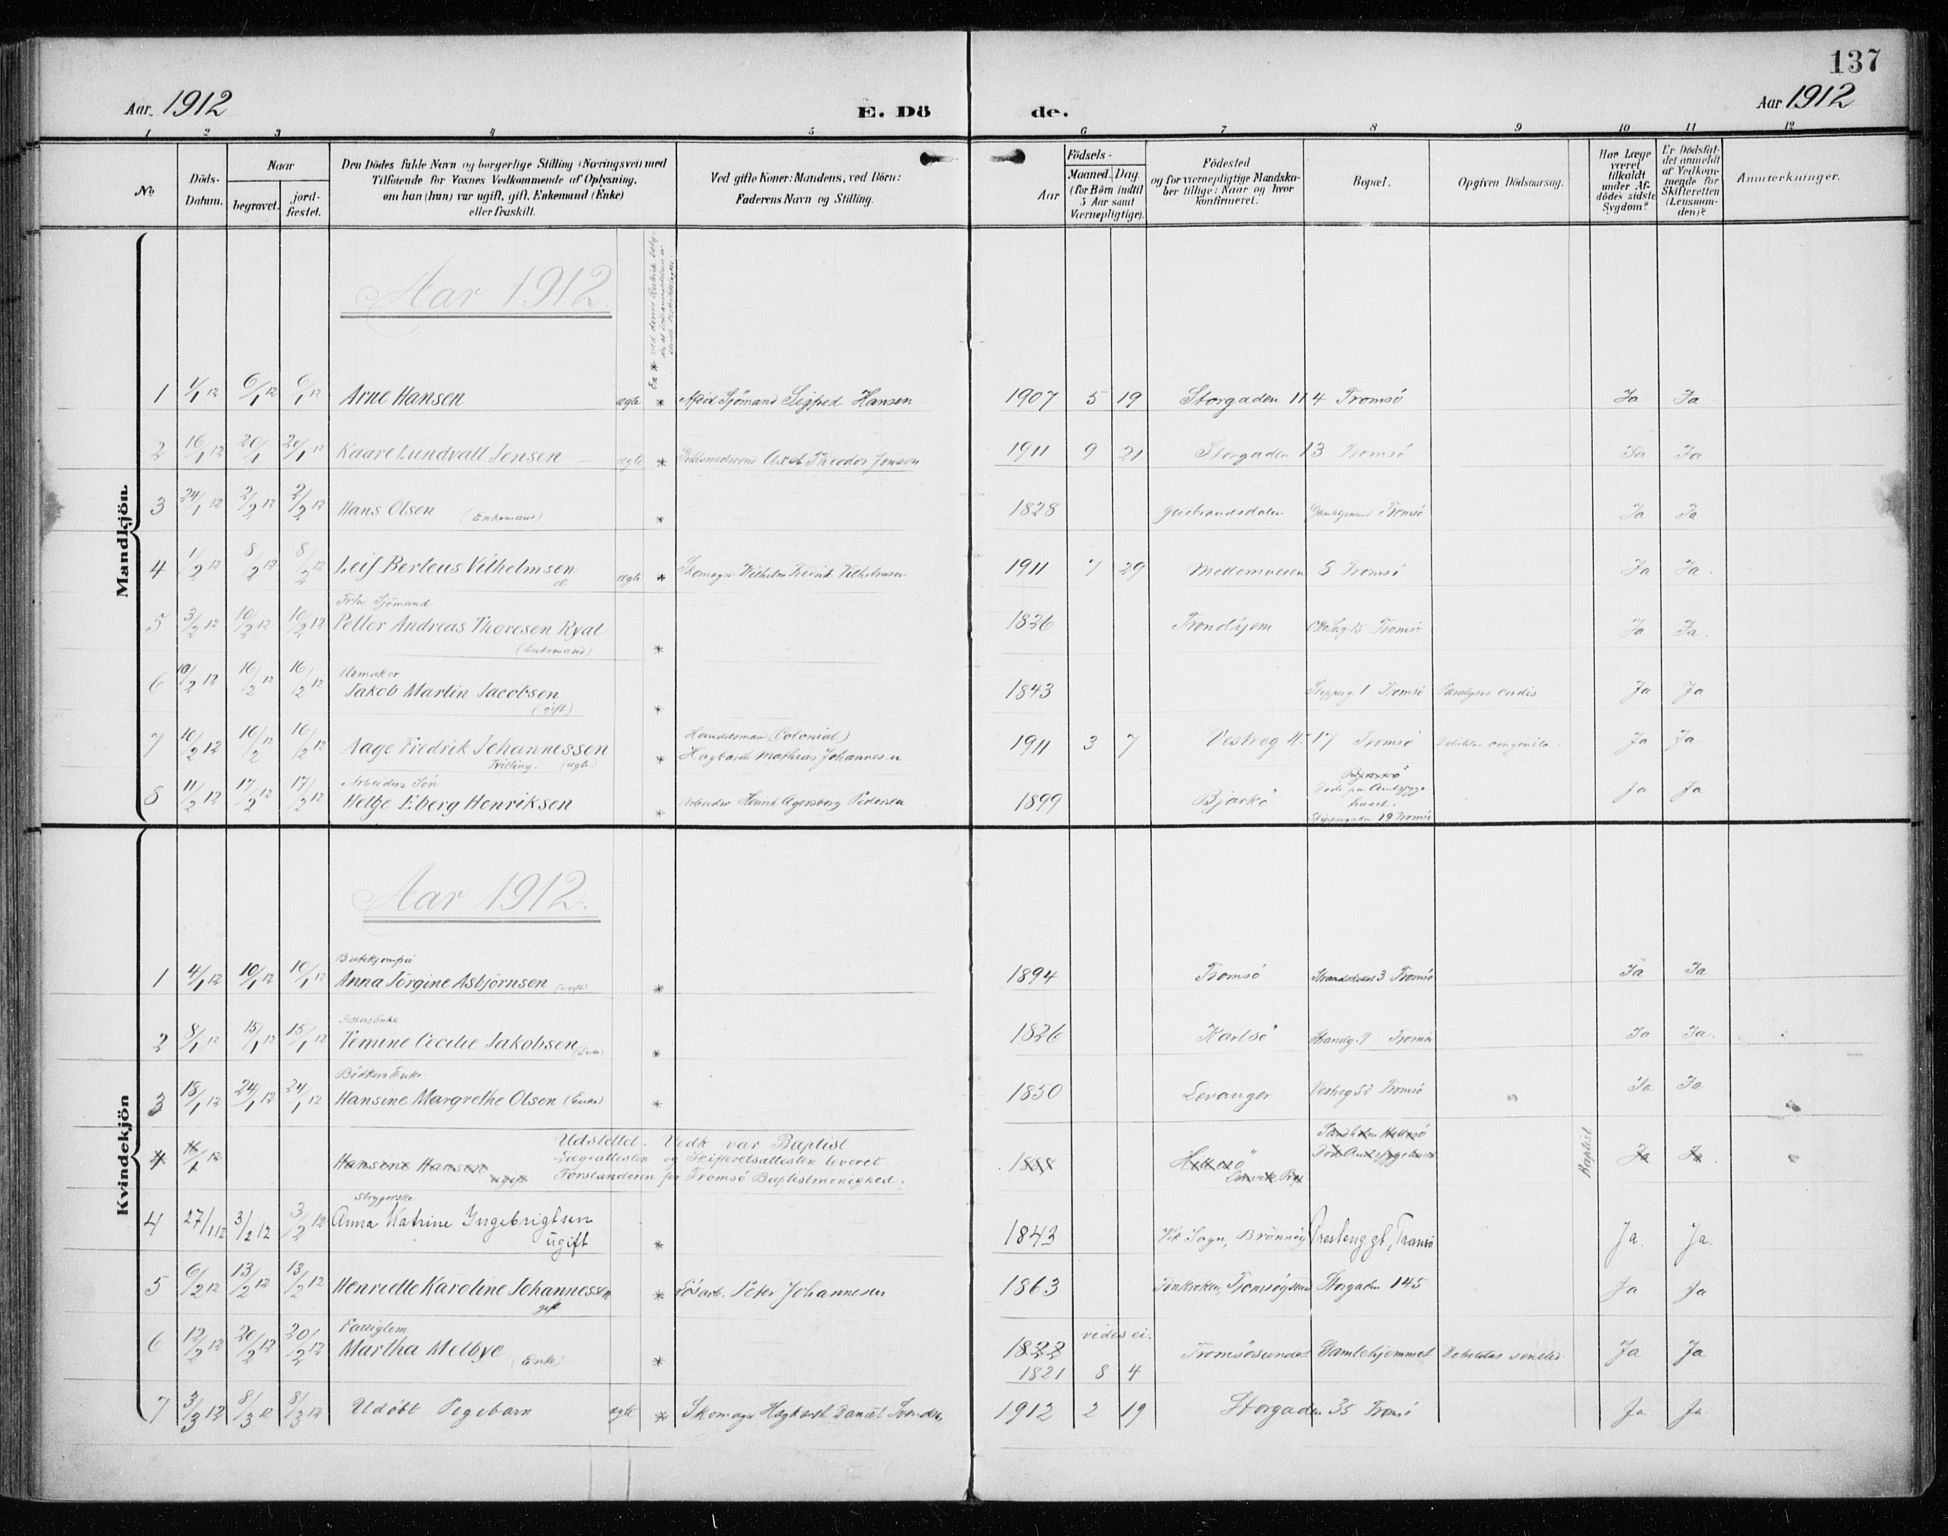 137
Aar 1912 E. Dö de. Aar 1912
1 2 3 4 5 6 7 8 9 10 11 12
No
Döds-Datum.
Naar
begravet. jordfæstet.
Den Dödes fulde Navn og borgerlige Stilling (Næringsvei) med
Tilföiende for Voxnes Vedkommende af Oplysning,
om han (hun) var ugift, gift, Enkemand (Enke)
eller fraskilt.
Ved gifte Koner: Mandens, ved Börn:
Faderens Navn og Stilling.
Födsels-
Aar Maaned. Dag.
(for Börn indtil 5 Aar samt Værnepligtige).
Födested
og for værnepligtige Mandskaber tillige: Naar og hvor konfirmeret.
Bopæl.
Opgiven Dödsaarsag.
Har Læge været tilkaldt under Afdödes sidste Sygdom?
Er Dödsfaldet anmeldt af Vedkommende for Skifteretten (Lensmanden)?
Anmærkninger.
Mandkjön.
Aar 1912.
1 1/1 12 6/1 12 6/1 12 Arne Hansen ægte * Sjömand Sigfred Hansen 1907 5 19 Storgaden 114 Tromsö Ja Ja
2 16/1 12 20/1 20/1 12 Kaare Lundvall Jensen ægte * Axel Theodor Jensen 1911 9 21 Storgaden 13 Tromsö Ja Ja
3 24/1 12 2/2 12 2/2 12 Hans Olsen (Enkemand) * 1828 Gudbrandsdalen Gamlehjemmet Tromsö Ja Ja
4 1/2 12 8/2 12 8/2 12 Leif Berteus Vilhelmsen ægte * Skomager Vilhelm Fredrik Vilhelmsen 1911 7 29 Mellemveien 8 Tromsö Ja Ja.
Frh Sjömand
5 3/2 12 10/2 12 10/2 12 Petter Andreas Thoresen Ryal (Enkemand) * 1826 Trondhjem 15 Tromsö Ja Ja.
Urmaker
6 10/2 12 16/2 12 16/2 12 Jakob Martin Jacobsen (gift) * 1843 Skipperg. 1 Tromsö Paralysis cordis Ja Ja
Handelsmand (Colonial)
7 10/2 12 16/2 12 16/2 12 Aage Fredrik Johannessen Tvilling. (ægte) * Hagbarth Mathias Johannesen 1911 3 7 Vestreg 17 Tromsö Debilitas congenita. Ja Ja
Arbeiders Sön
8 11/2 12 17/2 12 17/2 12 Helge Eberg Henriksen * Arbeider Henrik Pedersen 1899 Bjarkö Döde paa Amtssygehuset. Skippergaden 19 Tromsö Ja Ja
Kvindekjön
Aar 1912.
1 4/1 12 10/1 12 10/1 12 Anna Jörgine Asbjörnsen (ugift) * 1894 Tromsö Strandskillet 3 Tromsö Ja Ja
2 8/1 12 15/1 12 15/1 12 Jemine Cecilie Jakobsen (Enke) * 1826 Karlsö Strandg. 9 Tromsö Ja Ja.
Bödkers Enke
3 18/1 12 24/1 12 24/1 12 Hansine Margrethe Olsen (Enke) * 1850 Levanger Vestreg 52 Tromsö Ja Ja
4 12 Hansine Hansen ugift Udslettet. Vedk var Baptist
Lægeattesten og Skifteretsattesten leveret
Forstanderen for Tromsö Baptistmenighed. 1888 Hillesö Baptist Ja Ja.
Strygerske
4 27/1 12 3/2 12 3/2 12 Anna Katrine Ingebrigtsen ugift * 1843 Vik Sogn, Brönnö Presteng gt, Tromsö Ja. Ja.
5 6/2 12 13/2 12 13/2 12 Henriette Karoline Johannessen gift * Lösarb. Peter Johannesen 1863 Tromsöysund Storgaden 145 Ja Ja
Fattiglem vides ei.
6 12/2 12 20/2 12 20/2 12 Martha Melbye (Enke) * 1822 Tromsösundet Gamlehjemmet Debilitas senilis Ja Ja
1821 8 4
7 3/3 12 8/3 12 8/3 12 Udöbt Pigebarn ægte * Skomager Hagbarth Daniel 1912 2 19 Storgaden 35 Tromsö Ja Ja